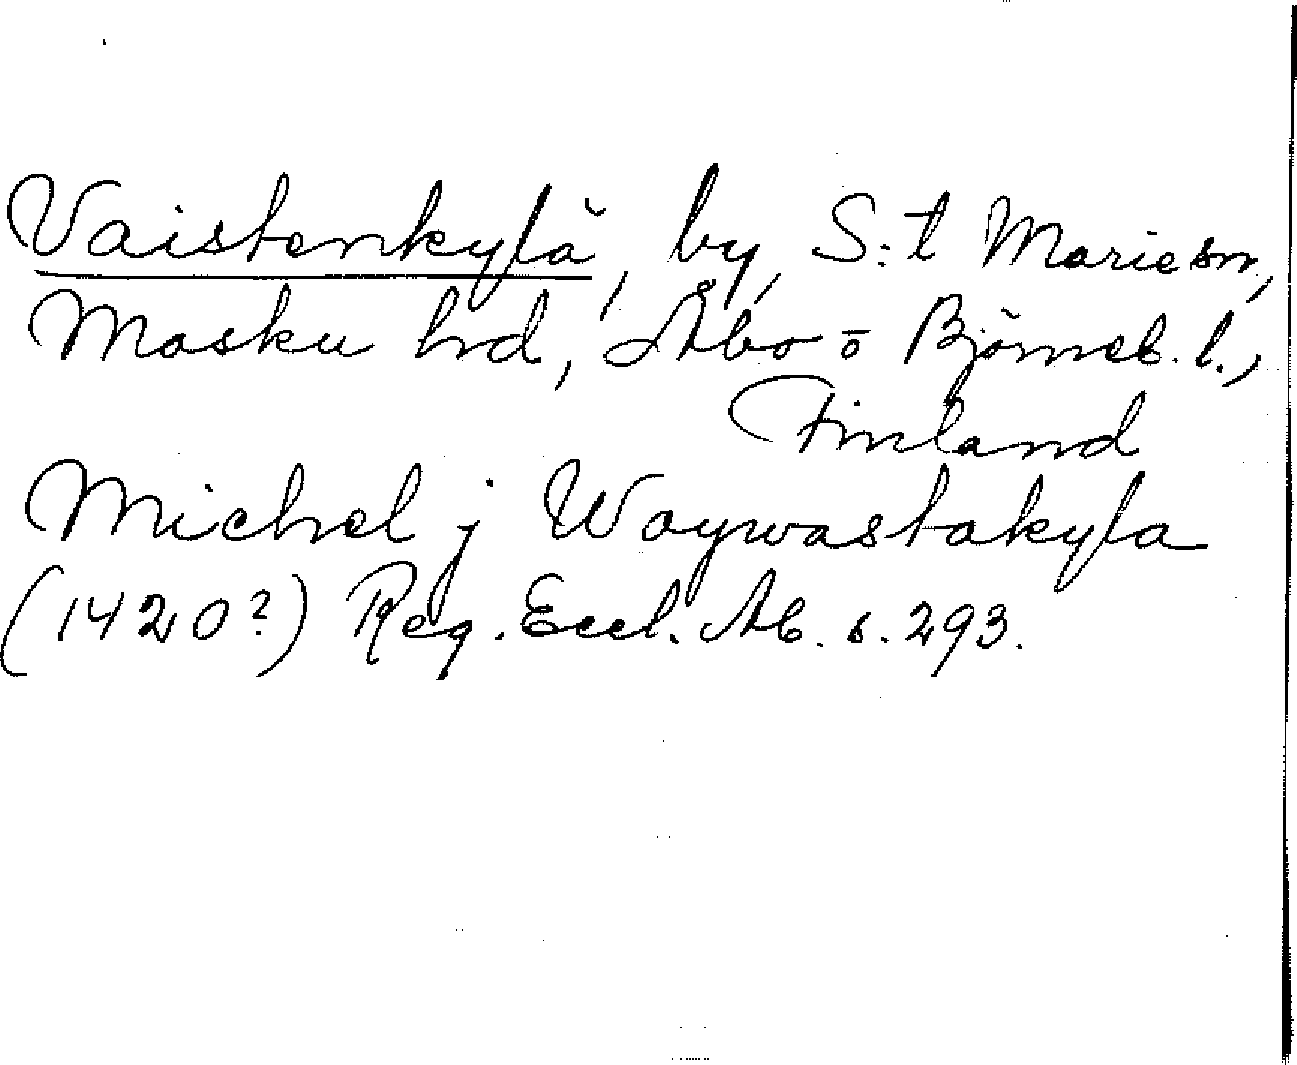 Vaistenkylä, by, S:t Marie sn,
Masku hd, Åbo o Björneb. l.,
Finland
Michel j Waywastakyla
(1420?) Reg. Eccl. Ab. s. 293.